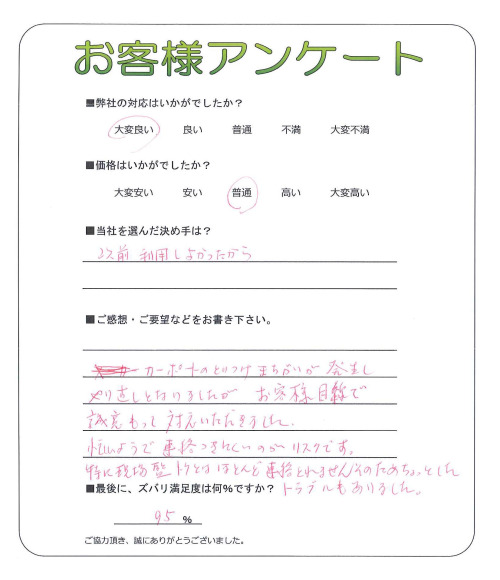 お客様アンケート
■弊社の対応はいかがでしたか？
大変良い 良い 普通 不満 大変不満
■価格はいかがでしたか？
大変安い 安い 普通 高い 大変高い
■当社を選んだ決め手は？
以前 利用しよかったから
■ご感想・ご要望などをお書き下さい。
カーポートのとりつけ まちがいが 発生し
やり直しとなりましたが お客様目線で
誠意もって 対応いただきました。
忙しいようで 連絡つきにくいのが リスクです。
特に現場監トクとは ほとんど連絡とれません/そのためちょっとした
■最後に、ズバリ満足度は何％ですか？ トラブルもありました。
95 ％
ご協力頂き、誠にありがとうございました。